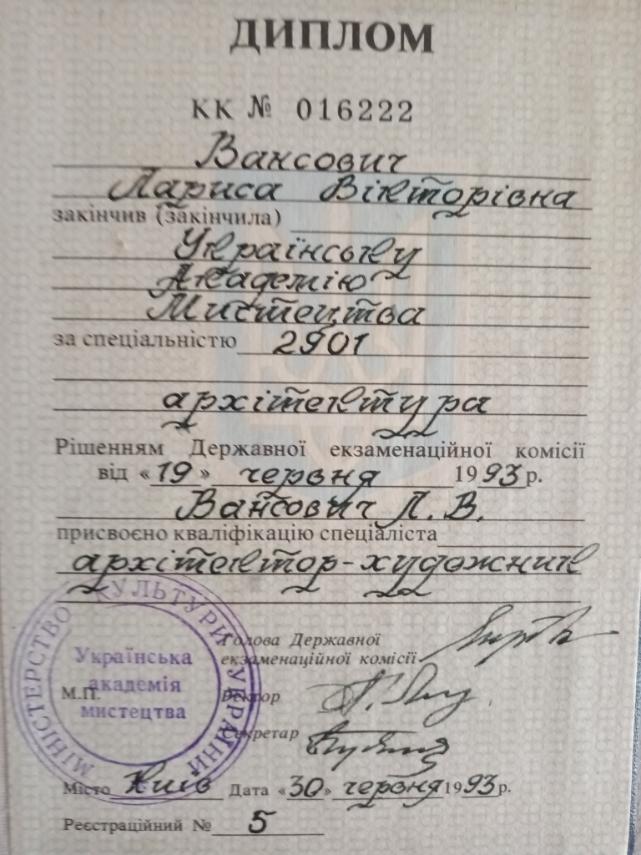 ДИПЛОМ
КК № 016222
Вансович
Лариса Вікторівна
закінчив (закінчила)
Українську
Академію
Мистецтва
за спеціальністю 2901
архітектура
Рішенням Державної екзаменаційної комісії
від «19» червня 1993р.
Вансович Л. В.
присвоєно кваліфікацію спеціаліста
архітектор-художник
МІНІСТЕРСТВО КУЛЬТУРИ УКРАЇНИ
Українська
академія
мистецтва
Голова Державної
екзаменаційної комісії
М.П. Ректор
Секретар
Місто Київ Дата «30» червня 1993р.
Реєстраційний № 5